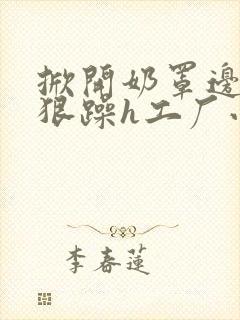 掀開奶罩邊
狠躁h工厂
李春蓮